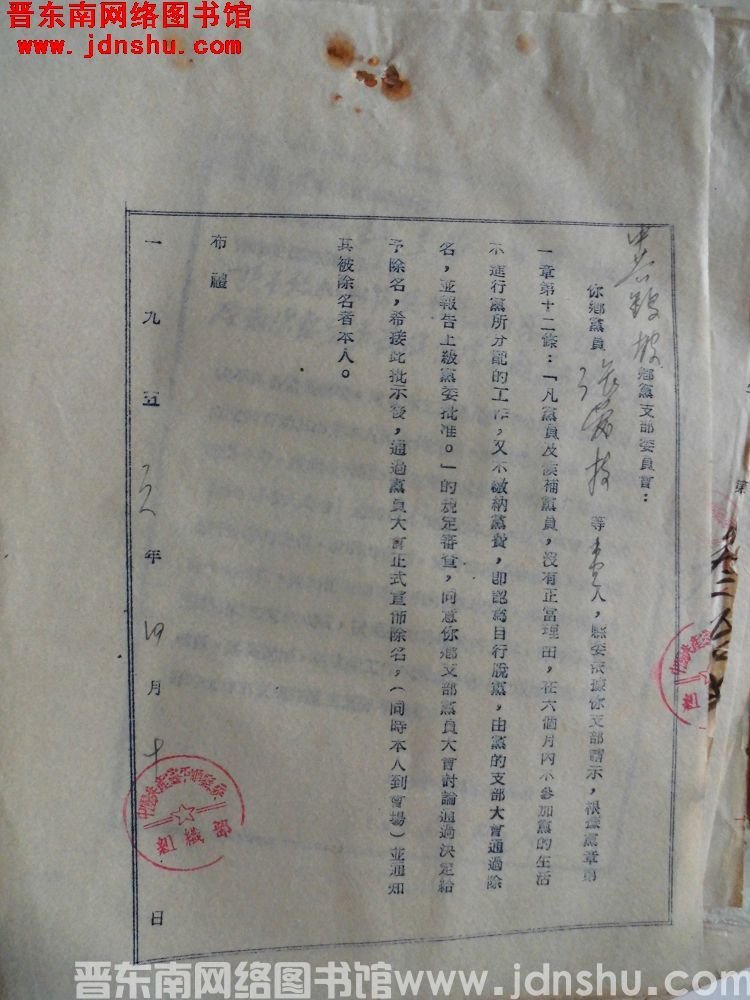 晋东南网络图书馆
www.jdnshu.com
鄉黨支部委員會：
你鄉黨員 等 人，縣委依據你支部請示，根據黨章第
一章第十二條：「凡黨員及候補黨員，沒有正當理由，在六個月內不參加黨的生活
不進行黨所分配的工作，又不繳納黨費，即認為自行脫黨，由黨的支部大會通過除
名，並報告上級黨委批准。」的規定審查，同意你鄉支部黨員大會討論通過決定給
予除名，希接此批示後，通過黨員大會正式宣佈除名，（同時本人到會場）並通知
其被除名者本人。
布禮
一九五 年 四月十 日
組織部
晋东南网络图书馆www.jdnshu.com